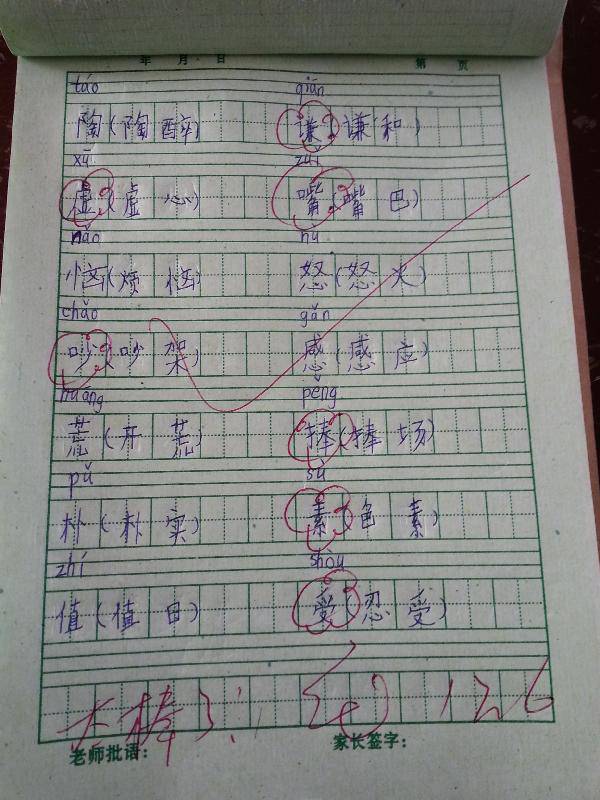 年 月 日 第 页
táo qiān
陶(陶醉) 谦(谦和)
xū zuǐ
虚(虚心) 嘴(嘴巴)
nǎo nù
恼(烦恼) 怒(怒火)
chǎo gǎn
吵(吵架) 感(感应)
huāng pěng
荒(开荒) 捧(捧场)
pǔ sù
朴(朴实) 素(色素)
zhí shòu
值(值日) 受(忍受)
太棒了! 12.6
老师批语: 家长签字: